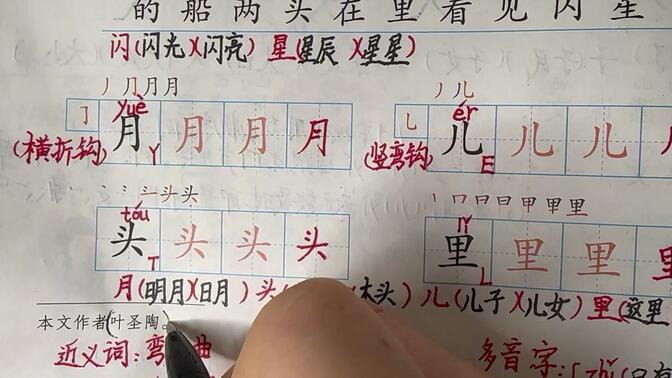 的船两头在里看见闪星
闪(闪光)(闪亮) 星(星辰)(星星)
丿 ⺆ 月 月 丿 儿
yuè ér
㇆ 月 月 月 月 乚 儿 儿 儿
(横折钩) Y (竖弯钩) E
头 头 丨 口 曰 日 甲 里 里
tóu lǐ
头 头 头 头 里 里 里 里
T L
月(明月)(日月) 头( 木头) 儿(儿子)(儿女) 里(这里
本文作者(叶圣陶。
近义词:弯 曲 多音字: zhǐ(只有